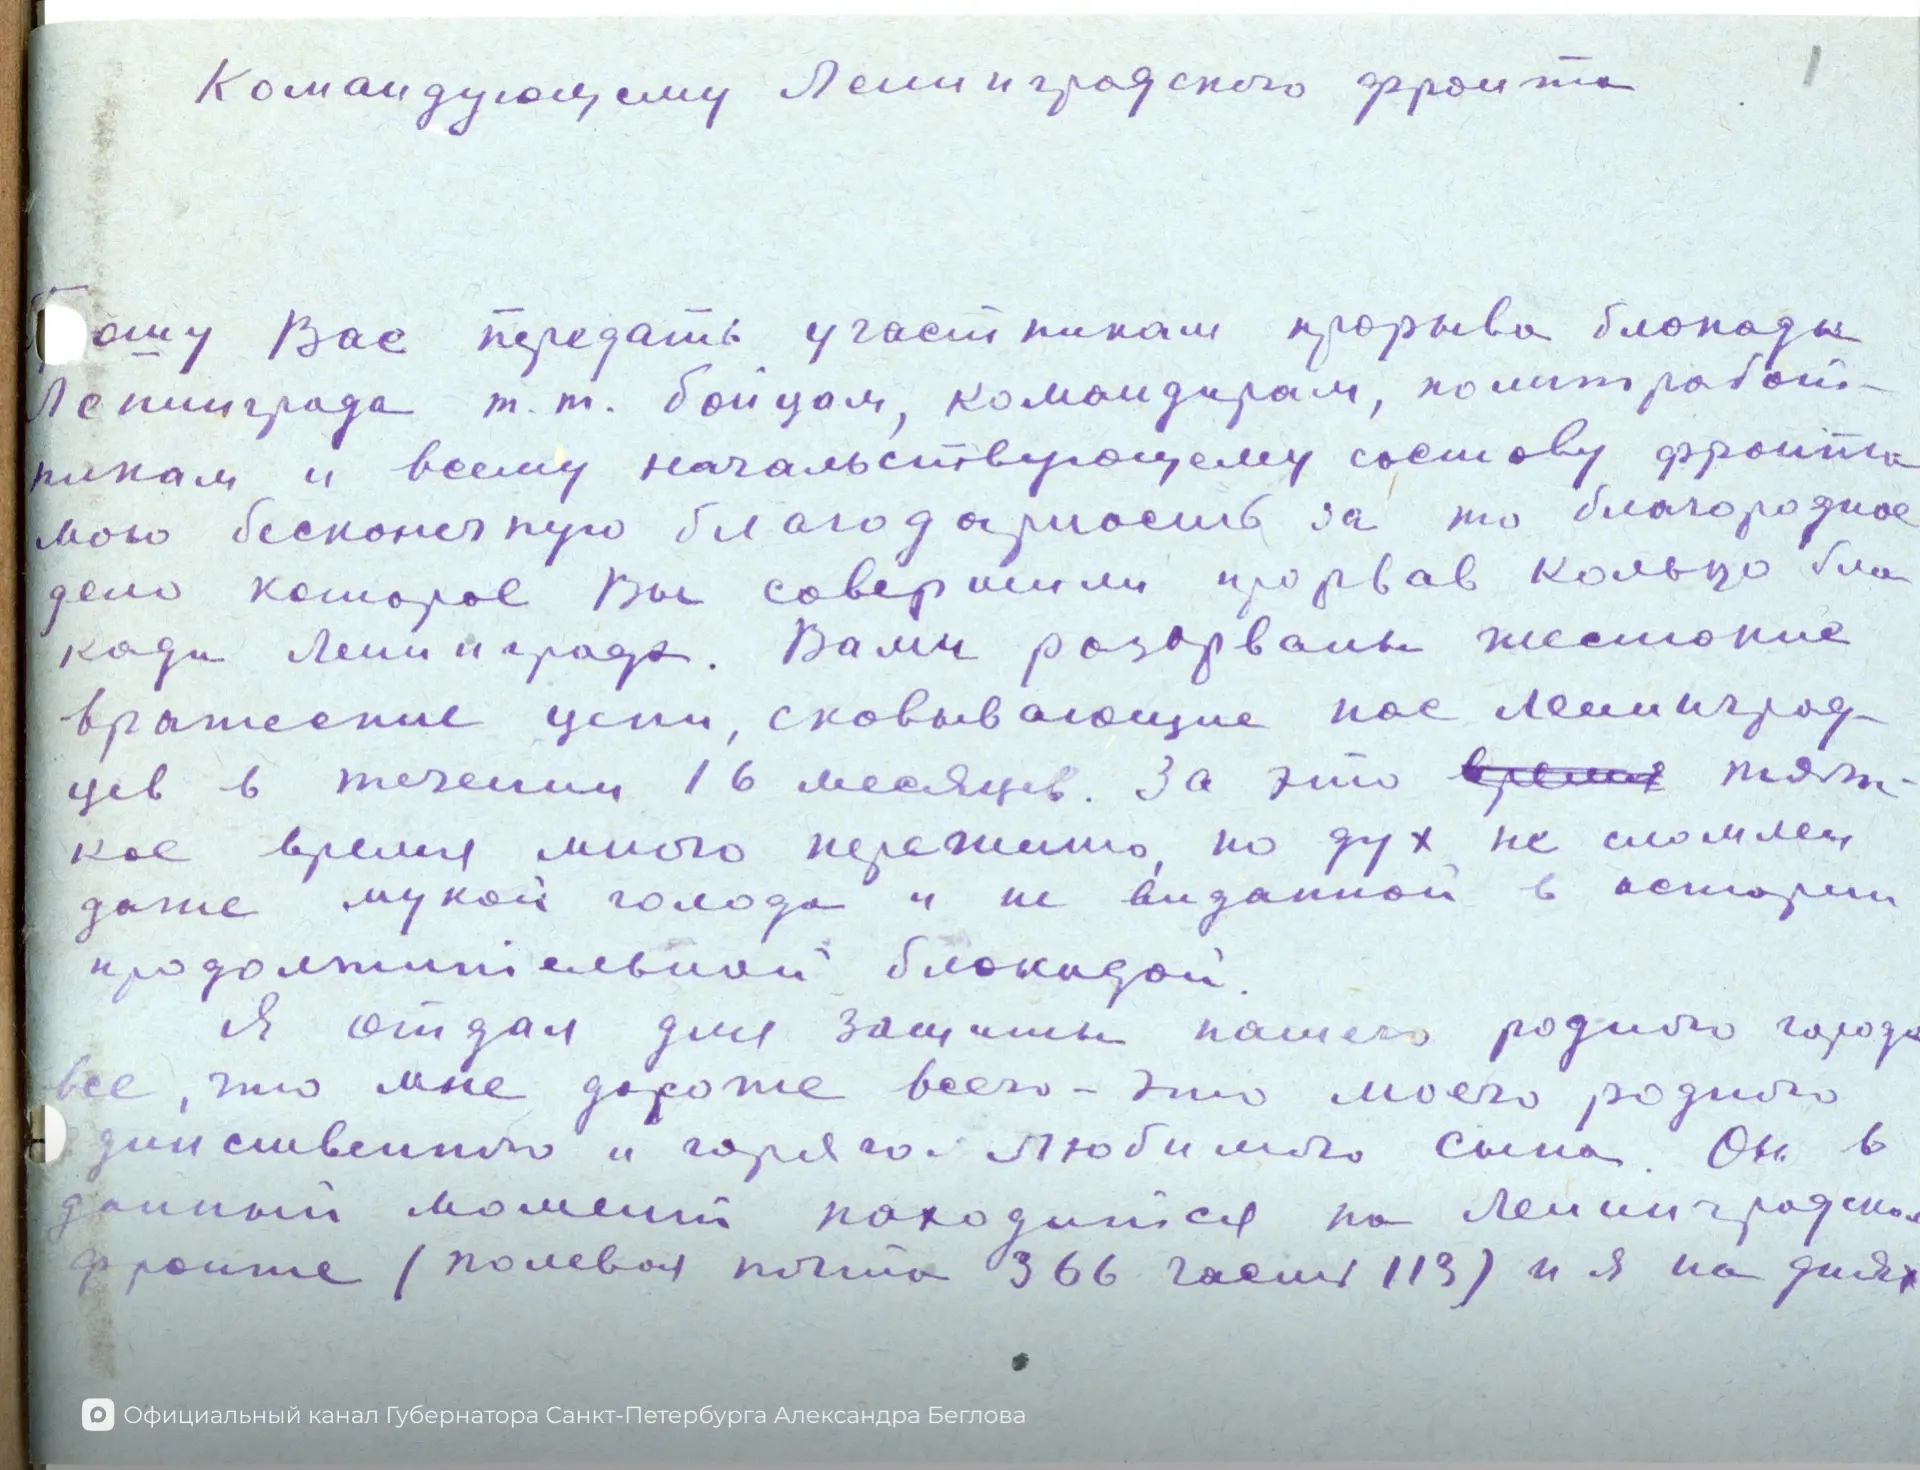 1
Командующему Ленинградского фронта
Прошу Вас передать участникам прорыва блокады
Ленинграда т.т. бойцам, командирам, политработ-
никам и всему начальствующему составу фронта
мою бесконечную благодарность за то благородное
дело которое Вы совершили прорвав кольцо бло
кады Ленинграда. Вами разорваны жестокие
вражеские цепи, сковывающие нас ленинград-
цев в течении 16 месяцев. За это время тяж-
кое время много пережито, но дух не сломлен
даже мукой голода и не виданной в истории
продолжительной блокадой.
Я отдал для защиты нашего родного города
все, что мне дороже всего – это моего родного
динственного и горячо любимого сына. Он в
данный момент находится на Ленинградском
фронте (полевая почта 366 часть 113) и я на днях
Официальный канал Губернатора Санкт-Петербурга Александра Беглова